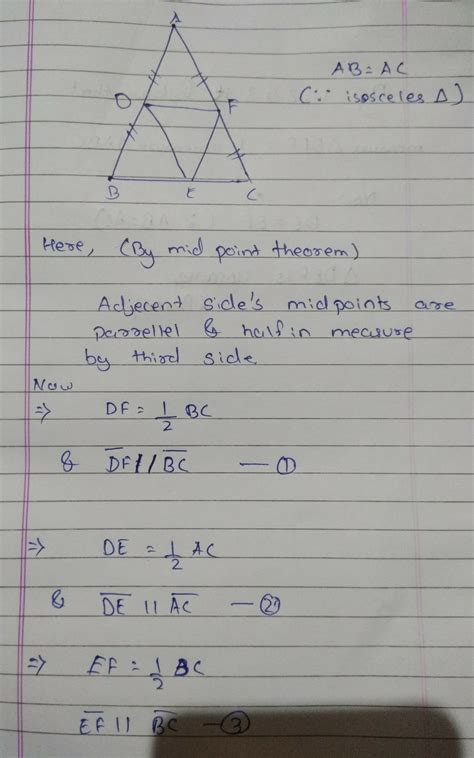 A
AB = AC
(∵ isosceles Δ)
D F
B E C
Here, (By mid point theorem)
Adjecent side's midpoints are
parrellel & half in measure
by third side.
Now
⇒ DF = 1/2 BC
& DF // BC — ①
⇒ DE = 1/2 AC
& DE || AC — ②
⇒ EF = 1/2 BC
EF || BC — ③